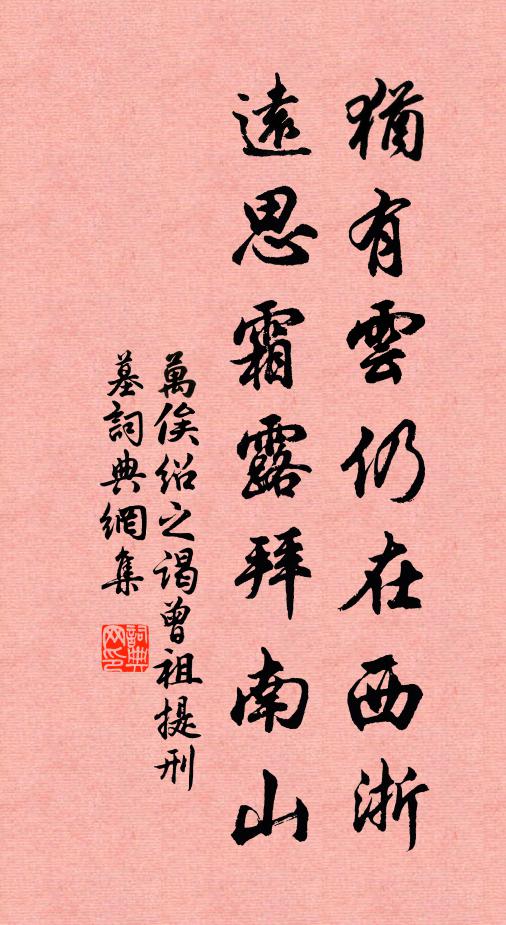 猶有雲仍在西浙
遠思霜露拜南山
萬俟紹之謁曾祖提刑
墓詞典網集
詞典网印